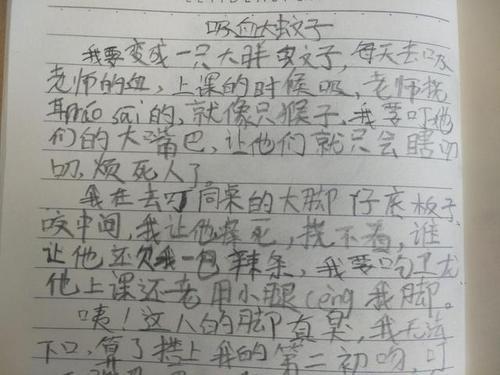 吸血大蚊子
我要变成一只大胖蚊子，每天去吸
老师的血，上课的时候吸，老师挠
其máo sāi的，就像只猴子，我要叮他
们的大嘴巴，让他们就只会瞎叨
叨，烦死人了
我在去叮同桌的大脚仔底板子
咬中间，我让他痒死，挠不着，谁
让他还欠我一包辣条，我要吃卫龙
他上课还老用小腿cèng我脚。
咦！这人的脚真臭，我无法
下口，算了搭上我的第二初吻，叮